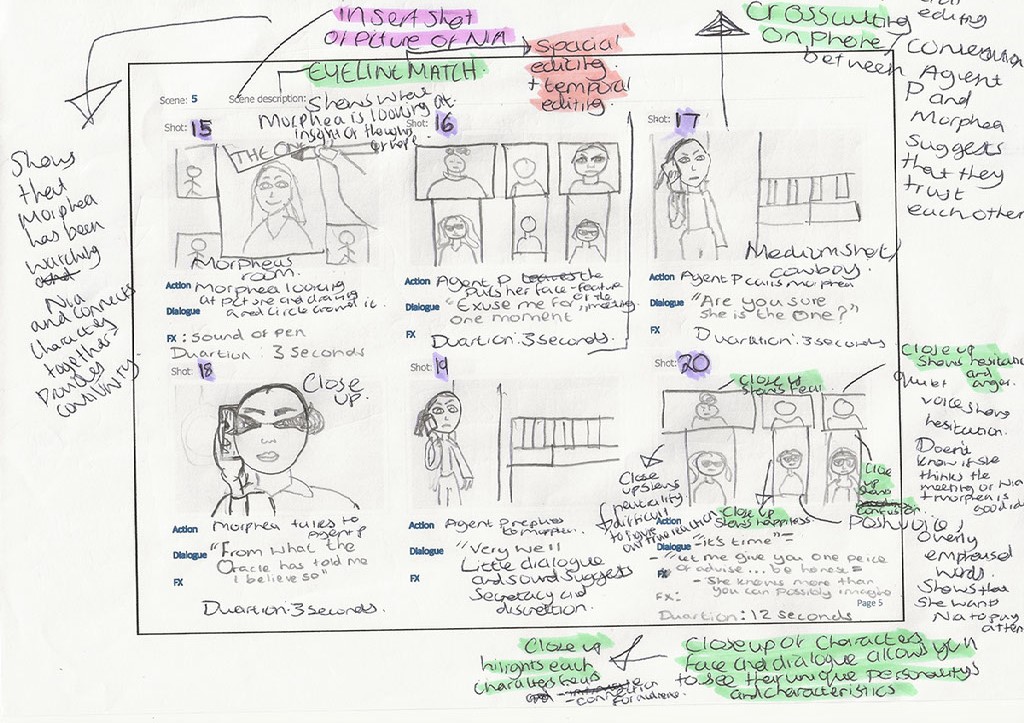 insert shot
of picture of NIA
EYELINE MATCH.
Spacial
editing.
+ temporal
editing.
Cross cutting
on phone
between
editing
conversation
Agent
P and
Morphea
suggests
that they
trust
each other
Shows
that
Morphea
has been
watching
Nia
and connects
characters
together
Provides
continuity.
Scene: 5
Scene description:
Shows what
Morphea is looking at.
insight of thoughts
Shot: 15
THE ONE
Morpheas
room.
Action
Morphea looking
at picture and drawing
and circle around it.
Dialogue
FX : Sound of pen
Duartion : 3 seconds
Shot: 16
Action
Agent P leaves the
puts her face-feature
of the meeting
Dialogue
"Exuse me for
one moment
FX
Duartion: 3 seconds.
Shot: 17
Medium shot/
cowboy.
Action
Agent P calls morphea
Dialogue
"Are you sure
she is the One?"
FX
Duaration: 3 seconds
Shot: 18
Close
up.
Action
Morphea talks to
agent P
Dialogue
"From what the
Oracle has told me
I believe so"
FX
Duartion: 3 seconds.
Shot: 19
Action
Agent P replies
to morphea.
Dialogue
"Very well
Little dialogue
and sound suggests
Secretacy and
discretion.
FX
Shot: 20
Close up
shows fear.
Close
up shows
neutrility
difficult
to figure
out true reaction
Close up
shows happiness.
Close
up
shows
confusion.
Action
Dialogue
"it's time" =
- "Let me give you one peice
of advise... be honest =
- She knows more than
you can possibly imagine
FX:
Duartion: 12 seconds
Page 5
Close up
shows hesitance
and
anger.
quiet
voice shows
hesitation.
Doesn't
know if she
thinks the
meeting of Nia
+ morphea is
good idea
Posh voice,
Overly
emphasised
words.
Shows that
She wants
Nia to pay
atten
Close up
hilights each
characters fears
- connection
for audience.
Close up of characters
face and dialogue allows you
to see their unique personalitys
and characteristics